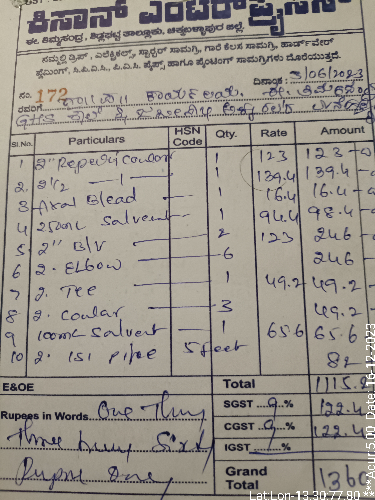 ಕಿಸಾನ್ ಎಂಟರ್‌ಪ್ರೈಸಸ್
ಈ. ತಿಮ್ಮಸಂದ್ರ, ಶಿಡ್ಲಘಟ್ಟ ತಾಲ್ಲೂಕು, ಚಿಕ್ಕಬಳ್ಳಾಪುರ ಜಿಲ್ಲೆ.
ನಮ್ಮಲ್ಲಿ ಡ್ರಿಪ್, ಎಲೆಕ್ಟ್ರಿಕಲ್ಸ್, ಸ್ಪ್ರಿಂಕ್ಲರ್ ಸಾಮಗ್ರಿ, ಗಾರೆ ಕೆಲಸ ಸಾಮಗ್ರಿ, ಹಾರ್ಡ್‌ವೇರ್
ಪ್ಲಂಬಿಂಗ್, ಸಿ.ಪಿ.ವಿ.ಸಿ., ಪಿ.ವಿ.ಸಿ. ಪೈಪ್ಸ್, ಹಾಗೂ ಪೈಂಟಿಂಗ್ ಸಾಮಗ್ರಿಗಳು ದೊರೆಯುತ್ತದೆ.
ನಂ. 172 ದಿನಾಂಕ: 3/06/2023
Sl.No. Particulars HSN Code Qty. Rate Amount
1 2" 1 123 123
2. 2 1/2 1 139.4 139.4
3 Axal Blead 1 16.4 16.4
4 250ml Solvent 1 94.4 98.4
5. 2" B/V 2 123 246
6 2. Elbow 6 246
7 2. Tee 1 49.2 49.2
8 2. 3 49.2
9 100ml Solvent 1 65.6 65.6
10 2. ISI pipe 5 feet 82
E&OE Total 1115.2
Rupees in Words One SGST 9 % 122.4
Three CGST 9 % 122.4
IGST %
Grand Total 1360
Lat:Lon-13.30:77.80 ***Acur:5.00 Date:16-12-2023